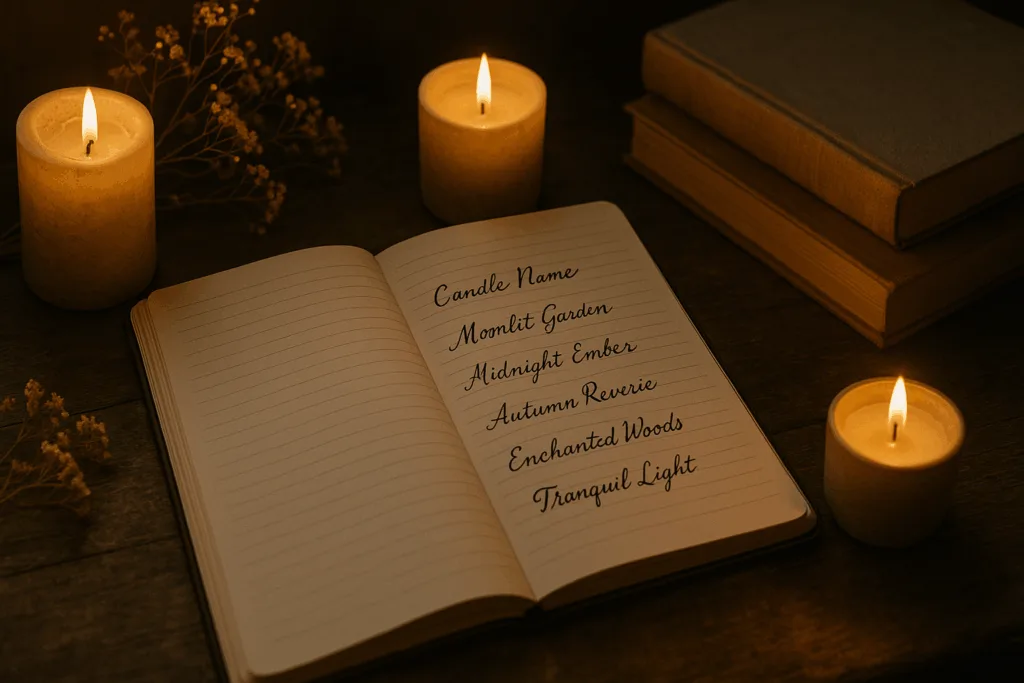 Candle Name
Moonlit Garden
Midnight Ember
Autumn Reverie
Enchanted Woods
Tranquil Light